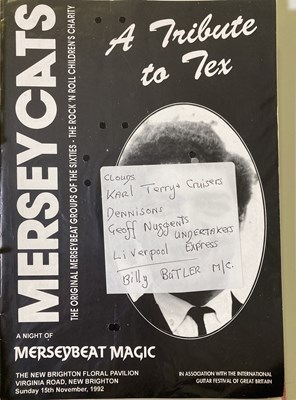 MERSEYCATS
THE ORIGINAL MERSEYBEAT GROUPS OF THE SIXTIES - THE ROCK 'N ROLL CHILDREN'S CHARITY
A Tribute
to Tex
CLOUDS.
KARL TERRY + CRUISERS
DENNISONS
Geoff Nuggents UNDERTAKERS
Liverpool Express
Billy BUTLER M/C.
A NIGHT OF
MERSEYBEAT MAGIC
THE NEW BRIGHTON FLORAL PAVILION
VIRGINIA ROAD, NEW BRIGHTON
Sunday 15th November, 1992
IN ASSOCIATION WITH THE INTERNATIONAL
GUITAR FESTIVAL OF GREAT BRITAIN